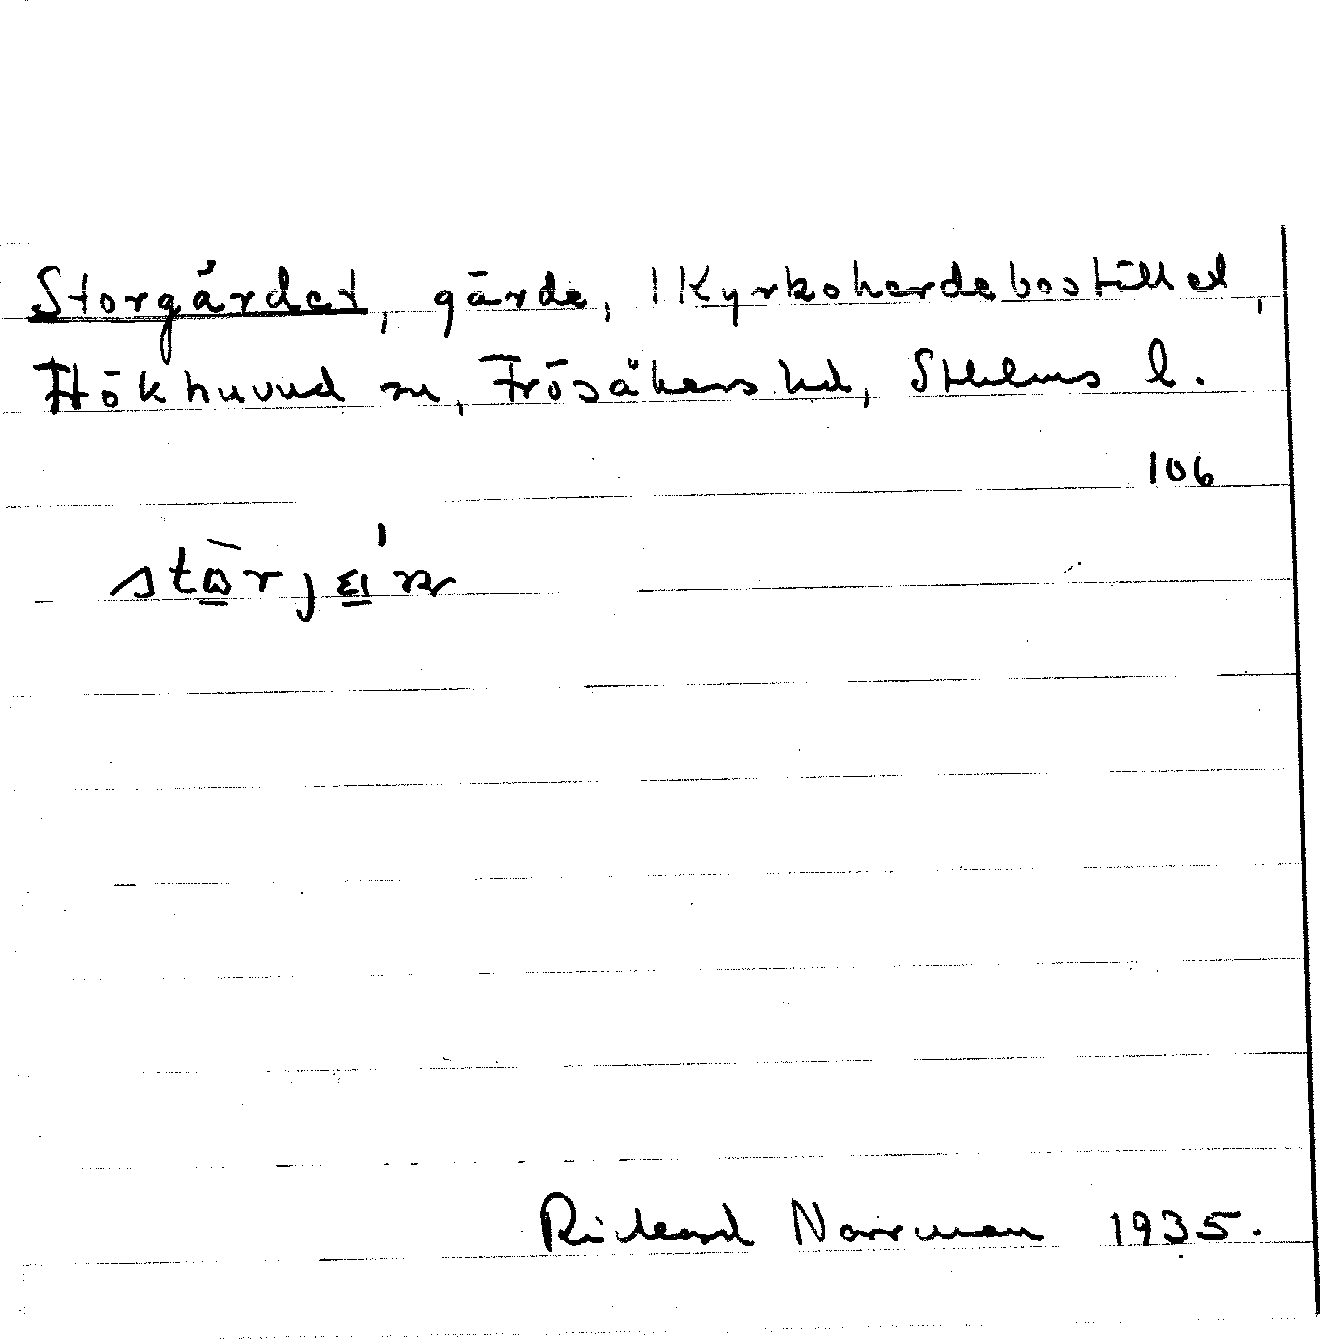 Storgärdet, gärde, Kyrkoherdebostället,
Hökhuvud sn, Frösåkers hd, Sthlms l.
106
Rickard Norrman 1935.